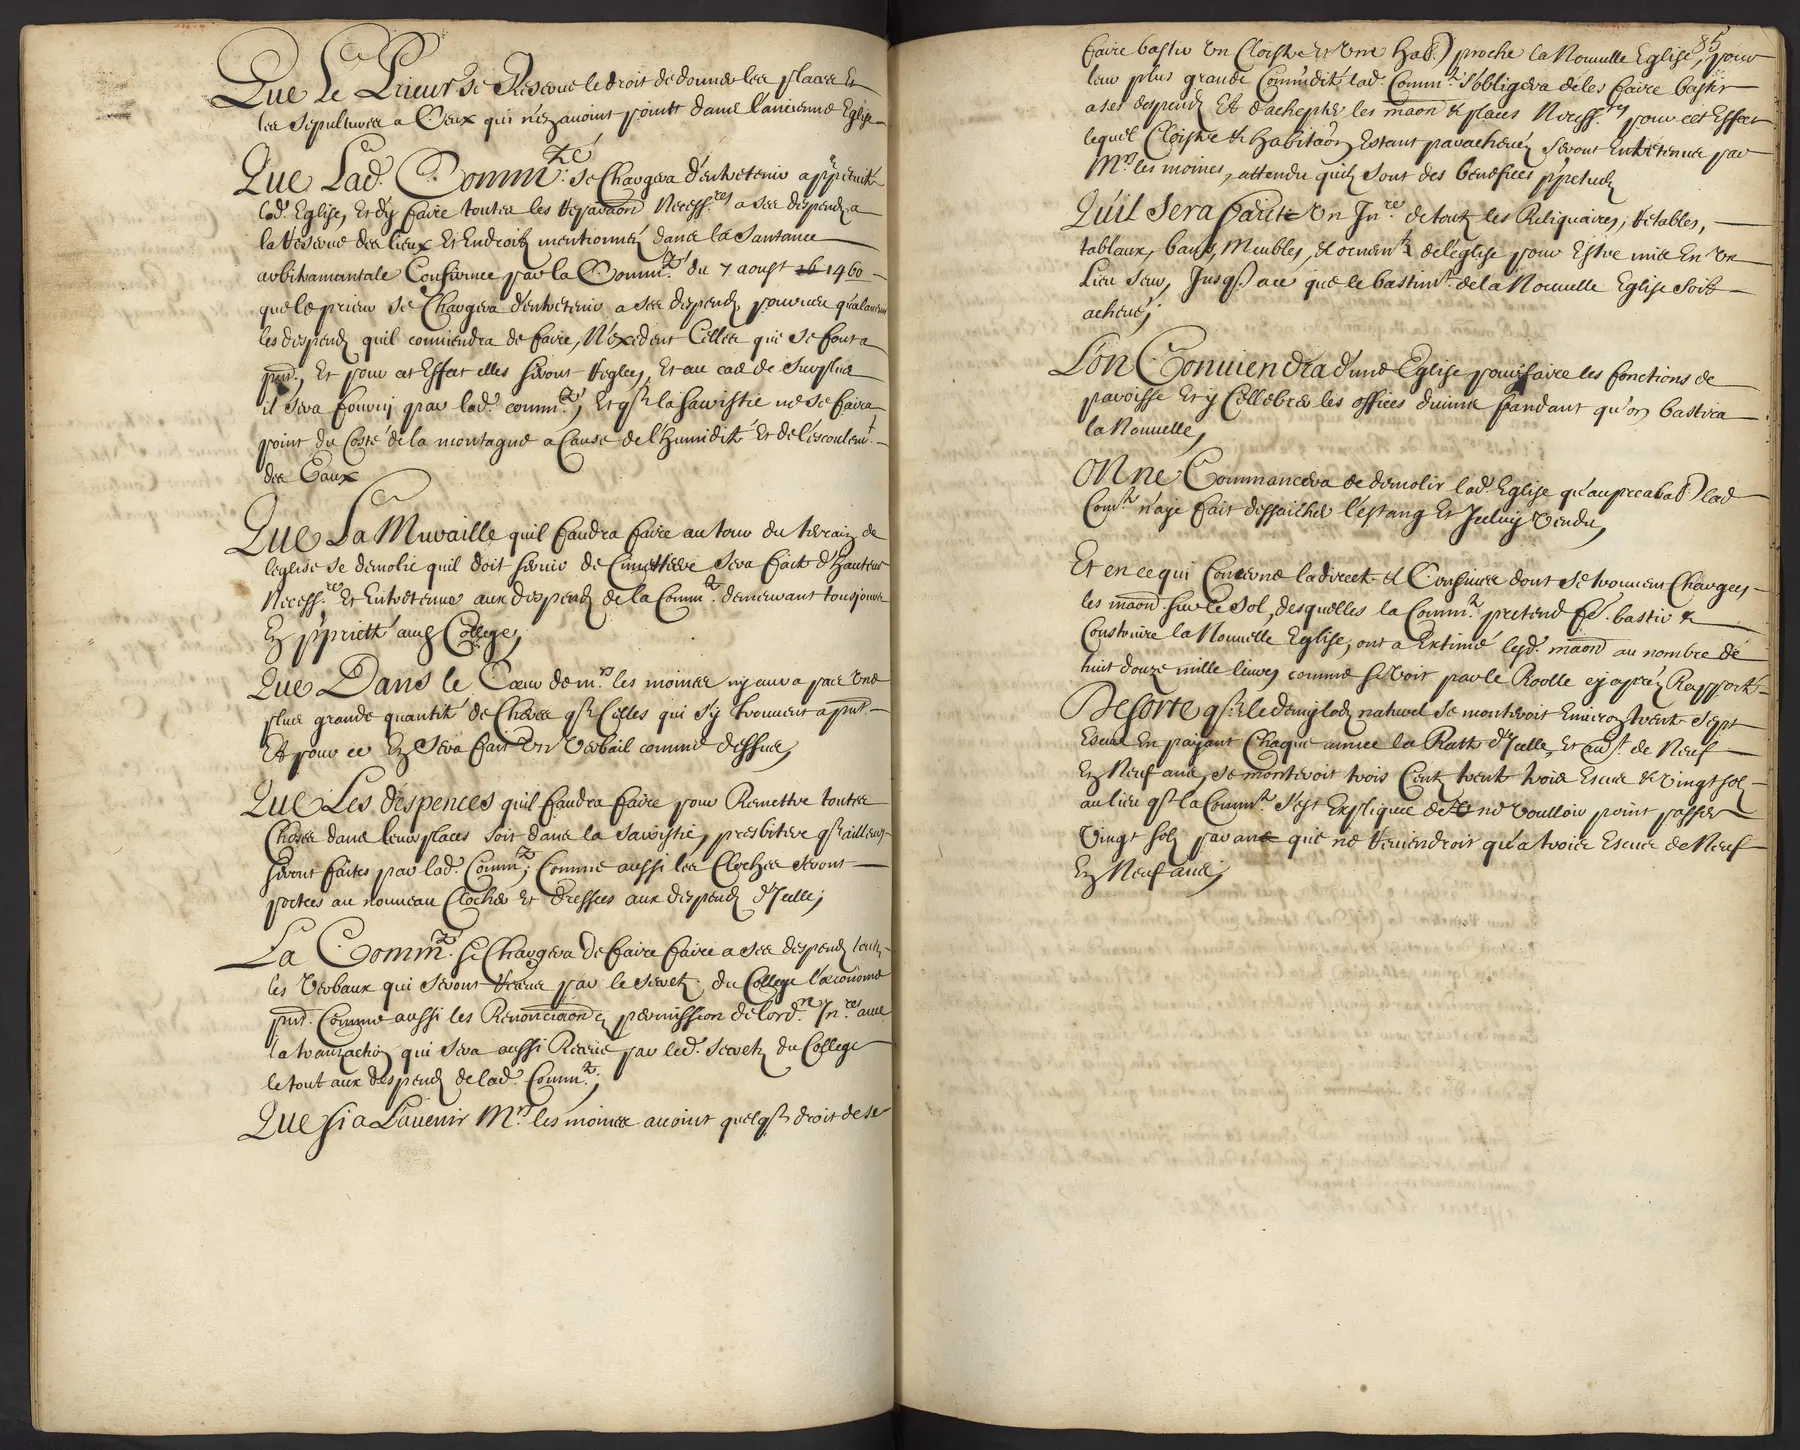 Que Le Prieur se Reserve le droit de donner les places Et
les sepultures a Ceux qui n'ez avoint point dans l'ancienne Eglise
Que Lad. Comm.té se Chargera d'entretenir a ppetuité
lad. Eglise, Et d'y faire toutes les reparaons Necess.res a ses despendz a
la reserve des lieux Et Endroitz mentionnez dans la Santance
arbitramantale Confirmee par la Comm.té du 7 aoust 1460
que le prieur se Chargera d'entretenir a ses despendz pourveu qu'alavenir
les despendz quil conviendra de faire, N'exedent Celles qui se font a
pnt. Et pour cet Effect elles seront reglees, Et au cas de surplus
il sera fourny par lad. comm.té, Et q. la sacristie ne se faira
point du Costé de la montagne a Cause de l'humidité Et de l'escoulem.t
des Eaux
Que La Muraille quil faudra faire au tour du terrain de
leglise se demolie quil doit servir de Cimettiere sera faict d'hauteur
Necess.re Et Entretenue aux despendz de la Comm.té demeurant tousjours
Ez ppriette aud. College,
Que Dans le Coeur de m.rs les moines ny aura pas Une
plus grande quantité de Cheres q. Celles qui s'y trouvent a pnt.
Et pour ce Ez sera fait un Verbail comme dessus,
Que Les despences quil faudra faire pour Remettre toutes
Choses dans leurs places soit dans la sacristie, presbitere q. ailleurs
seront faites par lad. Comm.té, Comme aussi les Cloches seront
portees au nouveau Clocher Et dressees aux despendz d'Icelle,
La Comm.té se Chargera de faire faire a ses despendz toutz
les Verbaux qui seront receus par le secret. du College l'oeconome
pnt. Comme aussi les Renonciaons permission de lord.re In.res avec
la tranzaction qui sera aussi Receue par led. secret. du College
le tout aux despendz de lad. Comm.té,
Que si a Lavenir M.rs les moines avoint quelq. droit de se
85
faire bastir un Cloistre Et Une hab.on proche la Nouvelle Eglise, pour
leur plus grande Commodité lad. Comm.té s'obligera de les faire bastir
a ses despendz Et d'achepter les maon & places Necess.res pour cet Effect
lequel Cloistre & habitaon Estant parachevéz seront Entretenus par
M.rs les moines, attendu quilz sont des benefices ppetuelz
Quil sera faict Un In.re de toutz les Reliquaires, retables,
tablaux, bancs, Meubles, & ornem.tz de leglise pour Estre mis En Un
Lieu seur, Jusq. a ce que le bastim.t de la Nouvelle Eglise soit
achevé,
L'on Conviendra d'une Eglise pour faire les fonctions de
paroisse Et y Cellebrer les offices divins pandant qu'on bastira
la Nouvelle,
ON ne Commancera de demolir lad. Eglise qu'au preabable lad
Com.té n'aye fait dessaicher l'estang Et Jceluy Vendu,
Et en ce qui Concerne la directe & Censives dont se trouvent Chargees
les maon sur le sol, desquelles la Comm.té pretend bastir &
Construire la Nouvelle Eglise, ont a Extimé lesd. maon au nombre de
huit douze mille livres comme se Voit par le Roolle cy apréz Rapporté
De sorte q. le demylodz naturel se monteroit Environ trente sept
Escus En payant Chaque annee la Ratte d'Icelle, Et de Neuf
Ez Neuf ans, se monteroit trois Centz trente trois Escus & Vingt solz
au lieu q. la Comm.té s'est Expliquee de ne Voulloir point passer
Vingt solz par an que ne reviendroit qu'a trois Escus de Neuf
Ez Neuf ans,